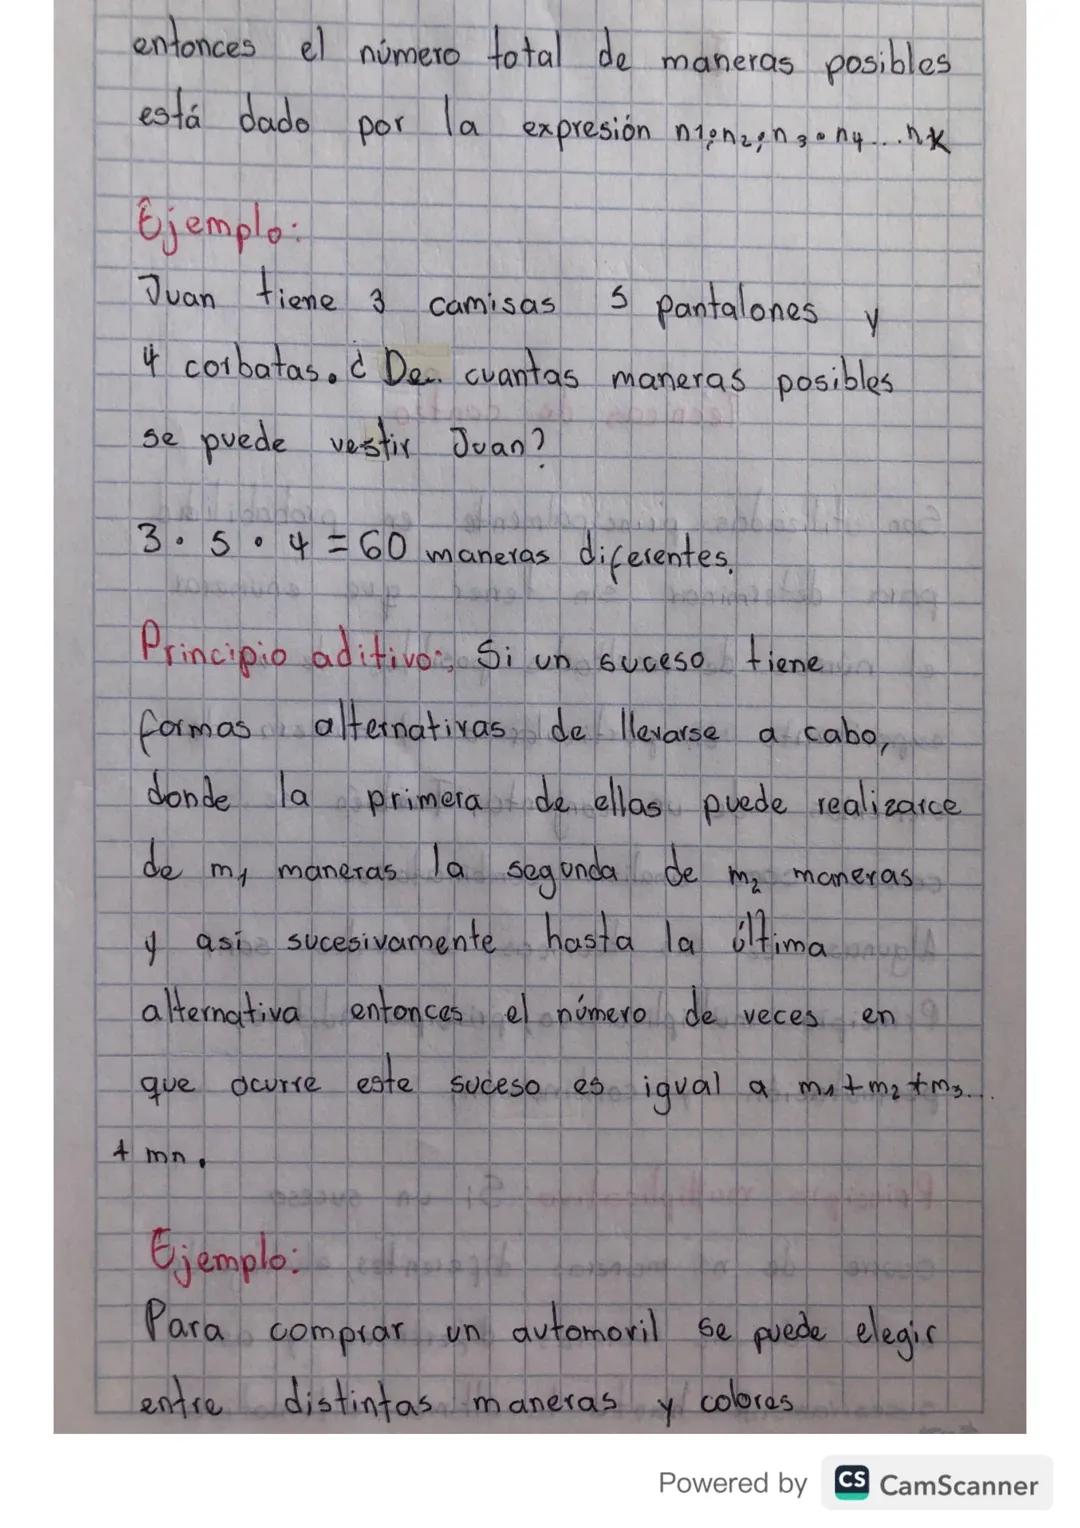 entonces el número total de maneras posibles
está dado por la expresión n1·n2·n3·n4...nk
Ejemplo:
Juan tiene 3 camisas 5 pantalones y
4 corbatas. ¿De cuantas maneras posibles
se puede vestir Juan?
3 · 5 · 4 = 60 maneras diferentes.
Principio aditivo: Si un suceso tiene
formas alternativas de llevarse a cabo,
donde la primera de ellas puede realizarce
de m1 maneras la segunda de m2 maneras
y así sucesivamente hasta la última
alternativa entonces el número de veces en
que ocurre este suceso es igual a m1+m2+m3...
+ mn.
Ejemplo:
Para comprar un automovil se puede elegir
entre distintas maneras y colores
Powered by CS CamScanner